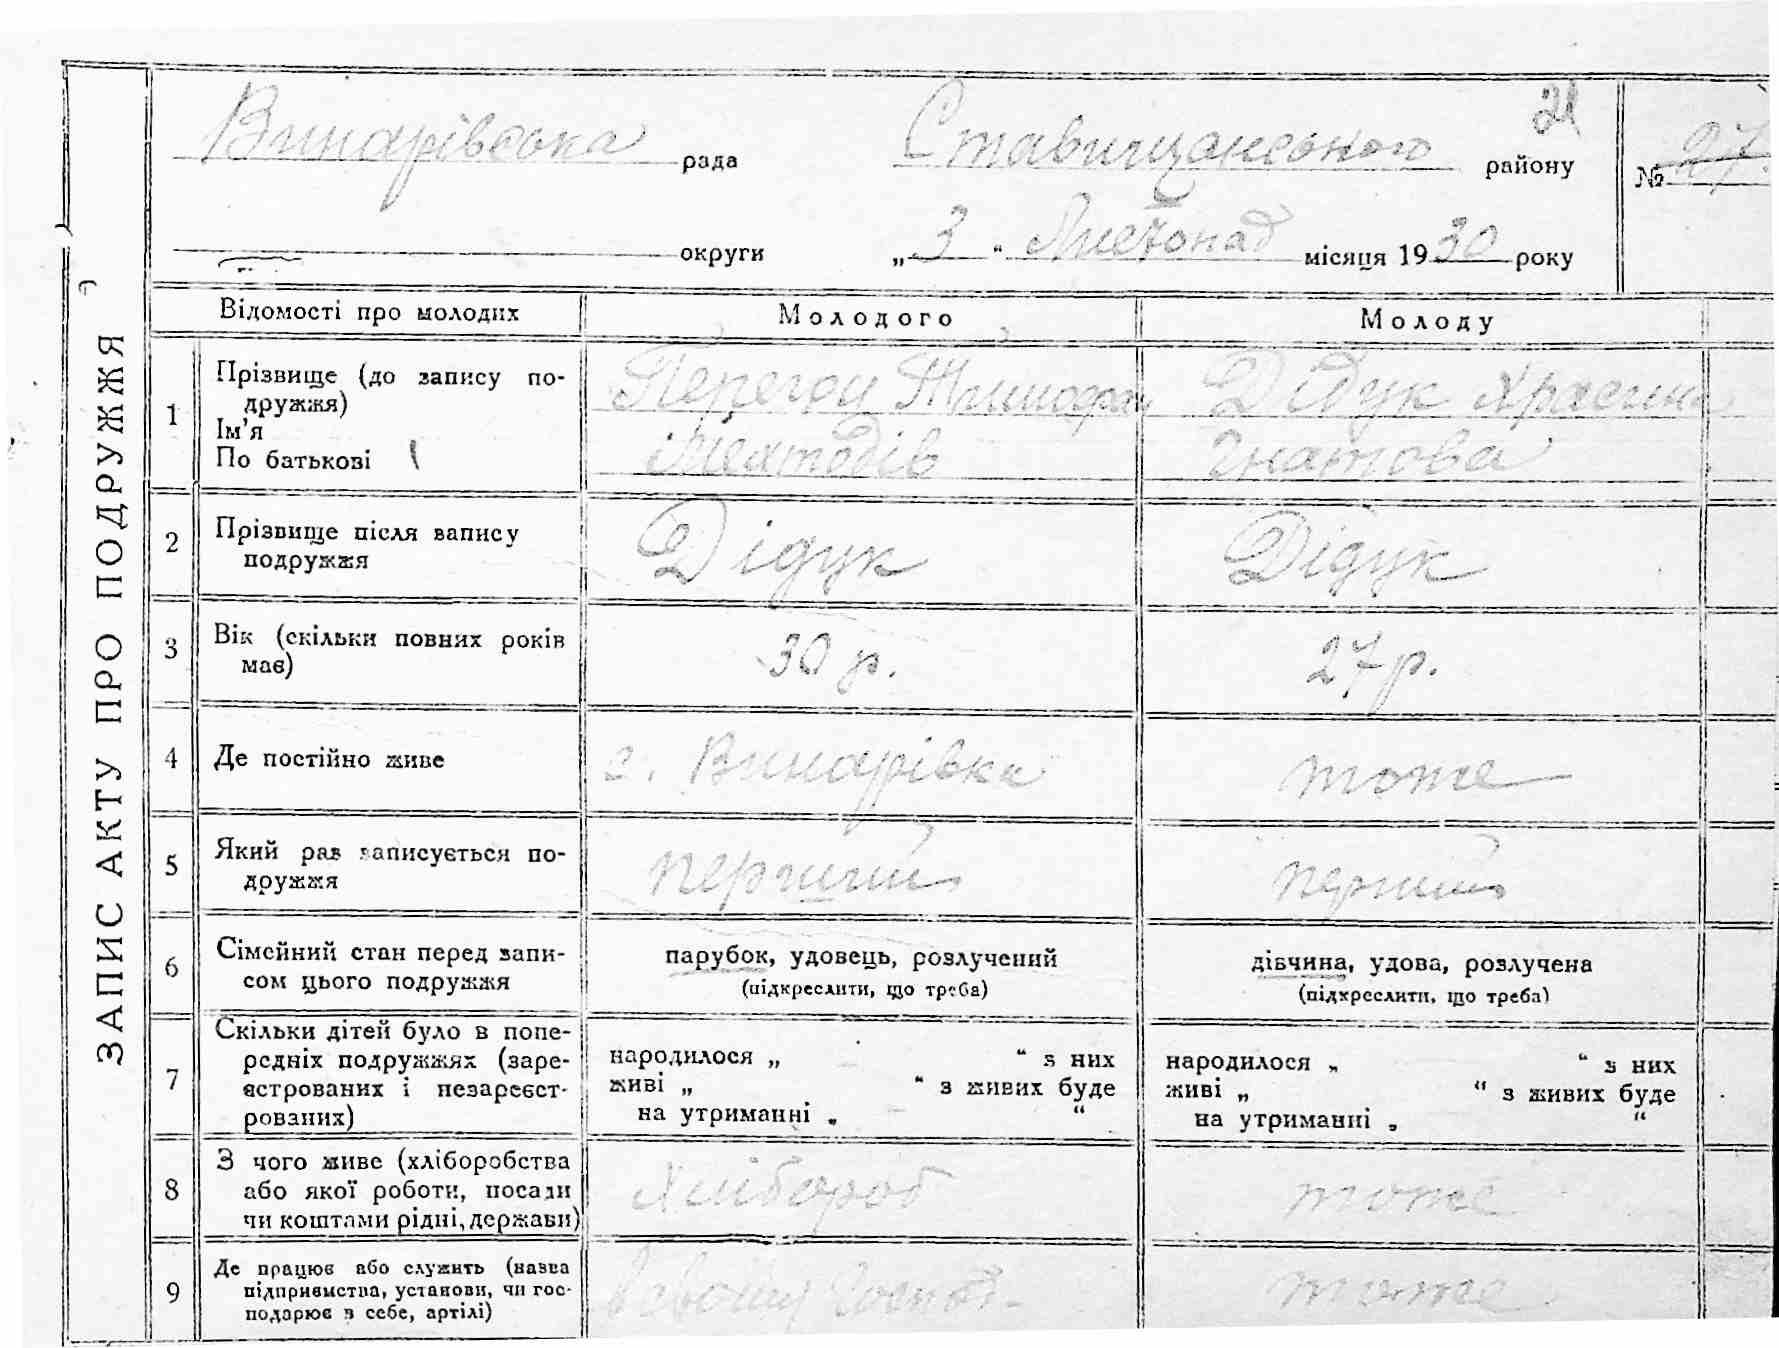 21
Винарівська рада Ставищанського району № 27
округи „3“ Листопад місяця 1930 року
ЗАПИС АКТУ ПРО ПОДРУЖЖЯ
Відомості про молодих Молодого Молоду
1 Прізвище (до запису по-
дружжя)
Ім'я
По батькові
Дідук
Гнатова
2 Прізвище після запису
подружжя
Дідук Дідук
3 Вік (скільки повних років
має)
30 р. 27 р.
4 Де постійно живе с. Винарівка тоже
5 Який раз записується по-
дружжя
перший перший
6 Сімейний стан перед запи-
сом цього подружжя
парубок, удовець, розлучений
(підкреслити, що треба)
дівчина, удова, розлучена
(підкреслити, що треба)
7 Скільки дітей було в попе-
редніх подружжях (заре-
єстрованих і незареєст-
рованих)
народилося „ “ з них
живі „ “ з живих буде
на утриманні „ “
народилося „ “ з них
живі „ “ з живих буде
на утриманні „ “
8 З чого живе (хліборобства
або якої роботи, посади
чи коштами рідні, держави)
Хлібороб тоже
9 Де працює або служить (назва
підприємства, установи, чи гос-
подарює в себе, артілі)
тоже